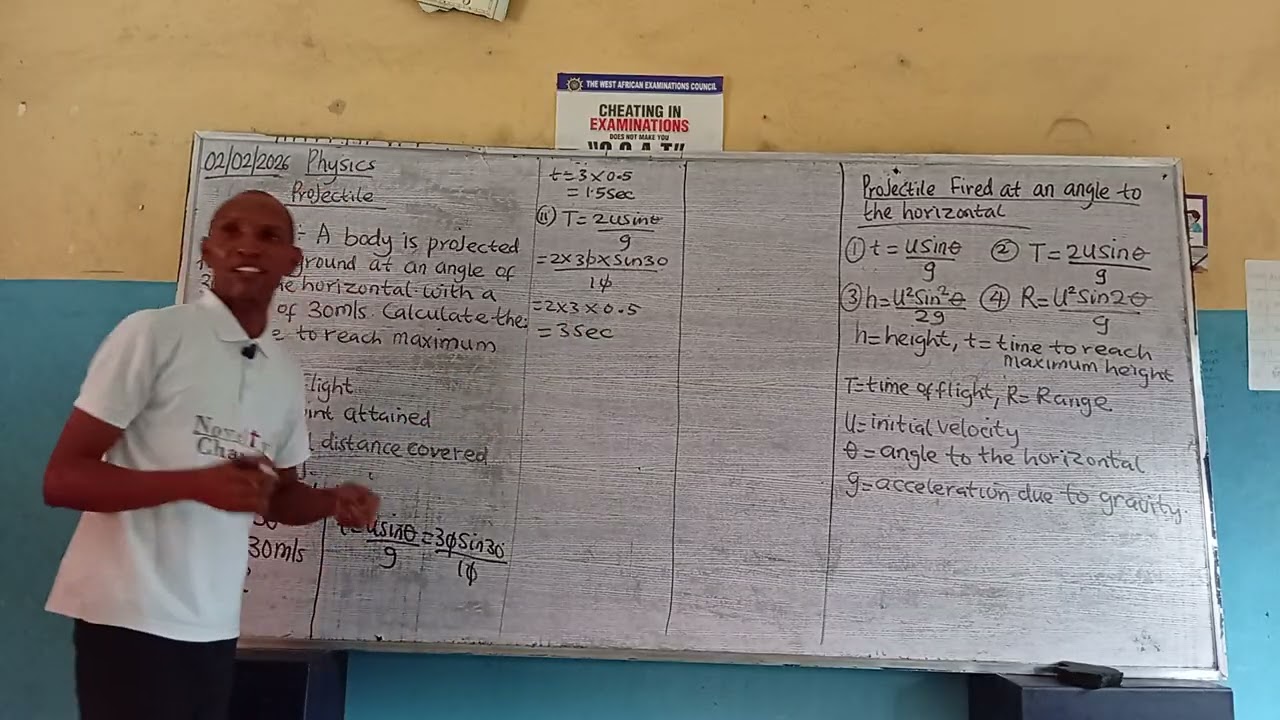 THE WEST AFRICAN EXAMINATIONS COUNCIL
CHEATING IN
EXAMINATIONS
DOES NOT MAKE YOU
02/02/2026 Physics
Projectile
:- A body is projected
ground at an angle of
horizontal with a
of 30m/s. Calculate the:
to reach maximum
flight
attained
distance covered
30m/s
t=usinθ/g = 30sin30/10
t=3×0.5
=1.5sec
(ii) T=2usinθ/g
=2×30×sin30/10
=2×3×0.5
=3sec
Projectile Fired at an angle to
the horizontal
① t=usinθ/g ② T=2usinθ/g
③ h=u²sin²θ/2g ④ R=u²sin2θ/g
h=height, t=time to reach
maximum height
T=time of flight, R=Range
u=initial velocity
θ=angle to the horizontal
g=acceleration due to gravity.